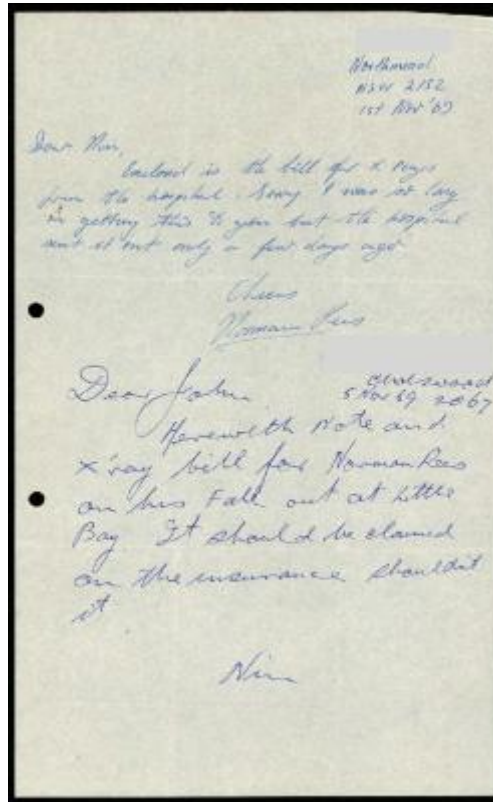 Northmead
NSW 2152
1st Nov '69
Dear Nin,
Enclosed is the bill for X rays
from the hospital. Sorry I was so long
in getting this to you but the hospital
sent it out only a few days ago
Cheers
Norman Rees
Chatswood
5 Nov 69 2067
Dear John
Herewith Note and
X'ray bill for Norman Rees
on his Fall out at Little
Bay It should be claimed
on the insurance shouldnt
it
Nin